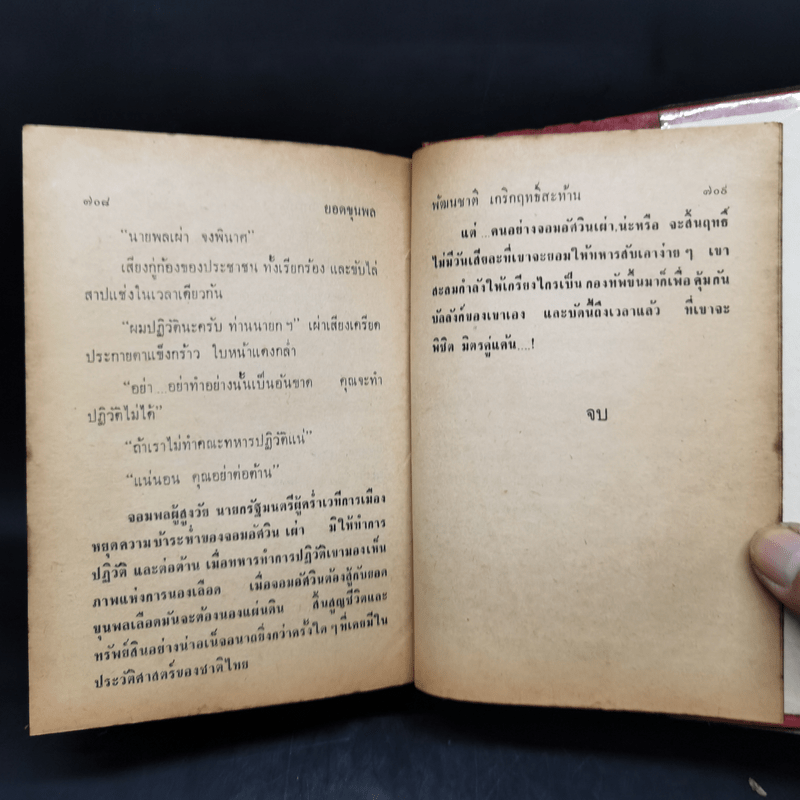 ๗๐๘ ยอดขุนพล
"นายพลเผ่า จงพินาศ"
เสียงกู่ก้องของประชาชน ทั้งเรียกร้อง และขับไล่
สาปแช่งในเวลาเดียวกัน
"ผมปฏิวัตินะครับ ท่านนายก ฯ" เผ่าเสียงเครียด
ประกายตาแข็งกร้าว ใบหน้าแดงกล่ำ
"อย่า ...อย่าทำอย่างนั้นเป็นอันขาด คุณจะทำ
ปฏิวัติไม่ได้"
"ถ้าเราไม่ทำคณะทหารปฏิวัติแน่"
"แน่นอน คุณอย่าต่อต้าน"
จอมพลผู้สูงวัย นายกรัฐมนตรีผู้คร่ำเวทีการเมือง
หยุดความบ้าระห่ำของจอมอัศวิน เผ่า มิให้ทำการ
ปฏิวัติ และต่อต้าน เมื่อทหารทำการปฏิวัติเขามองเห็น
ภาพแห่งการนองเลือด เมื่อจอมอัศวินต้องสู้กับยอด
ขุนพลเลือดมันจะต้องนองแผ่นดิน สิ้นสูญชีวิตและ
ทรัพย์สินอย่างน่าอเน็จอนาถยิ่งกว่าครั้งใด ๆ ที่เคยมีใน
ประวัติศาสตร์ของชาติไทย
พัฒนชาติ เกริกฤทธิ์สะท้าน ๗๐๙
แต่ ...คนอย่างจอมอัศวินเผ่า, น่ะหรือ จะสิ้นฤทธิ์
ไม่มีวันเสียละที่เขาจะยอมให้ทหารสับเอาง่าย ๆ เขา
สะสมกำลังให้เกรียงไกรเป็น กองทัพขึ้นมาก็เพื่อ คุ้มกัน
บัลลังก์ของเขาเอง และบัดนี้ถึงเวลาแล้ว ที่เขาจะ
พิชิต มิตรคู่แค้น....!
จบ